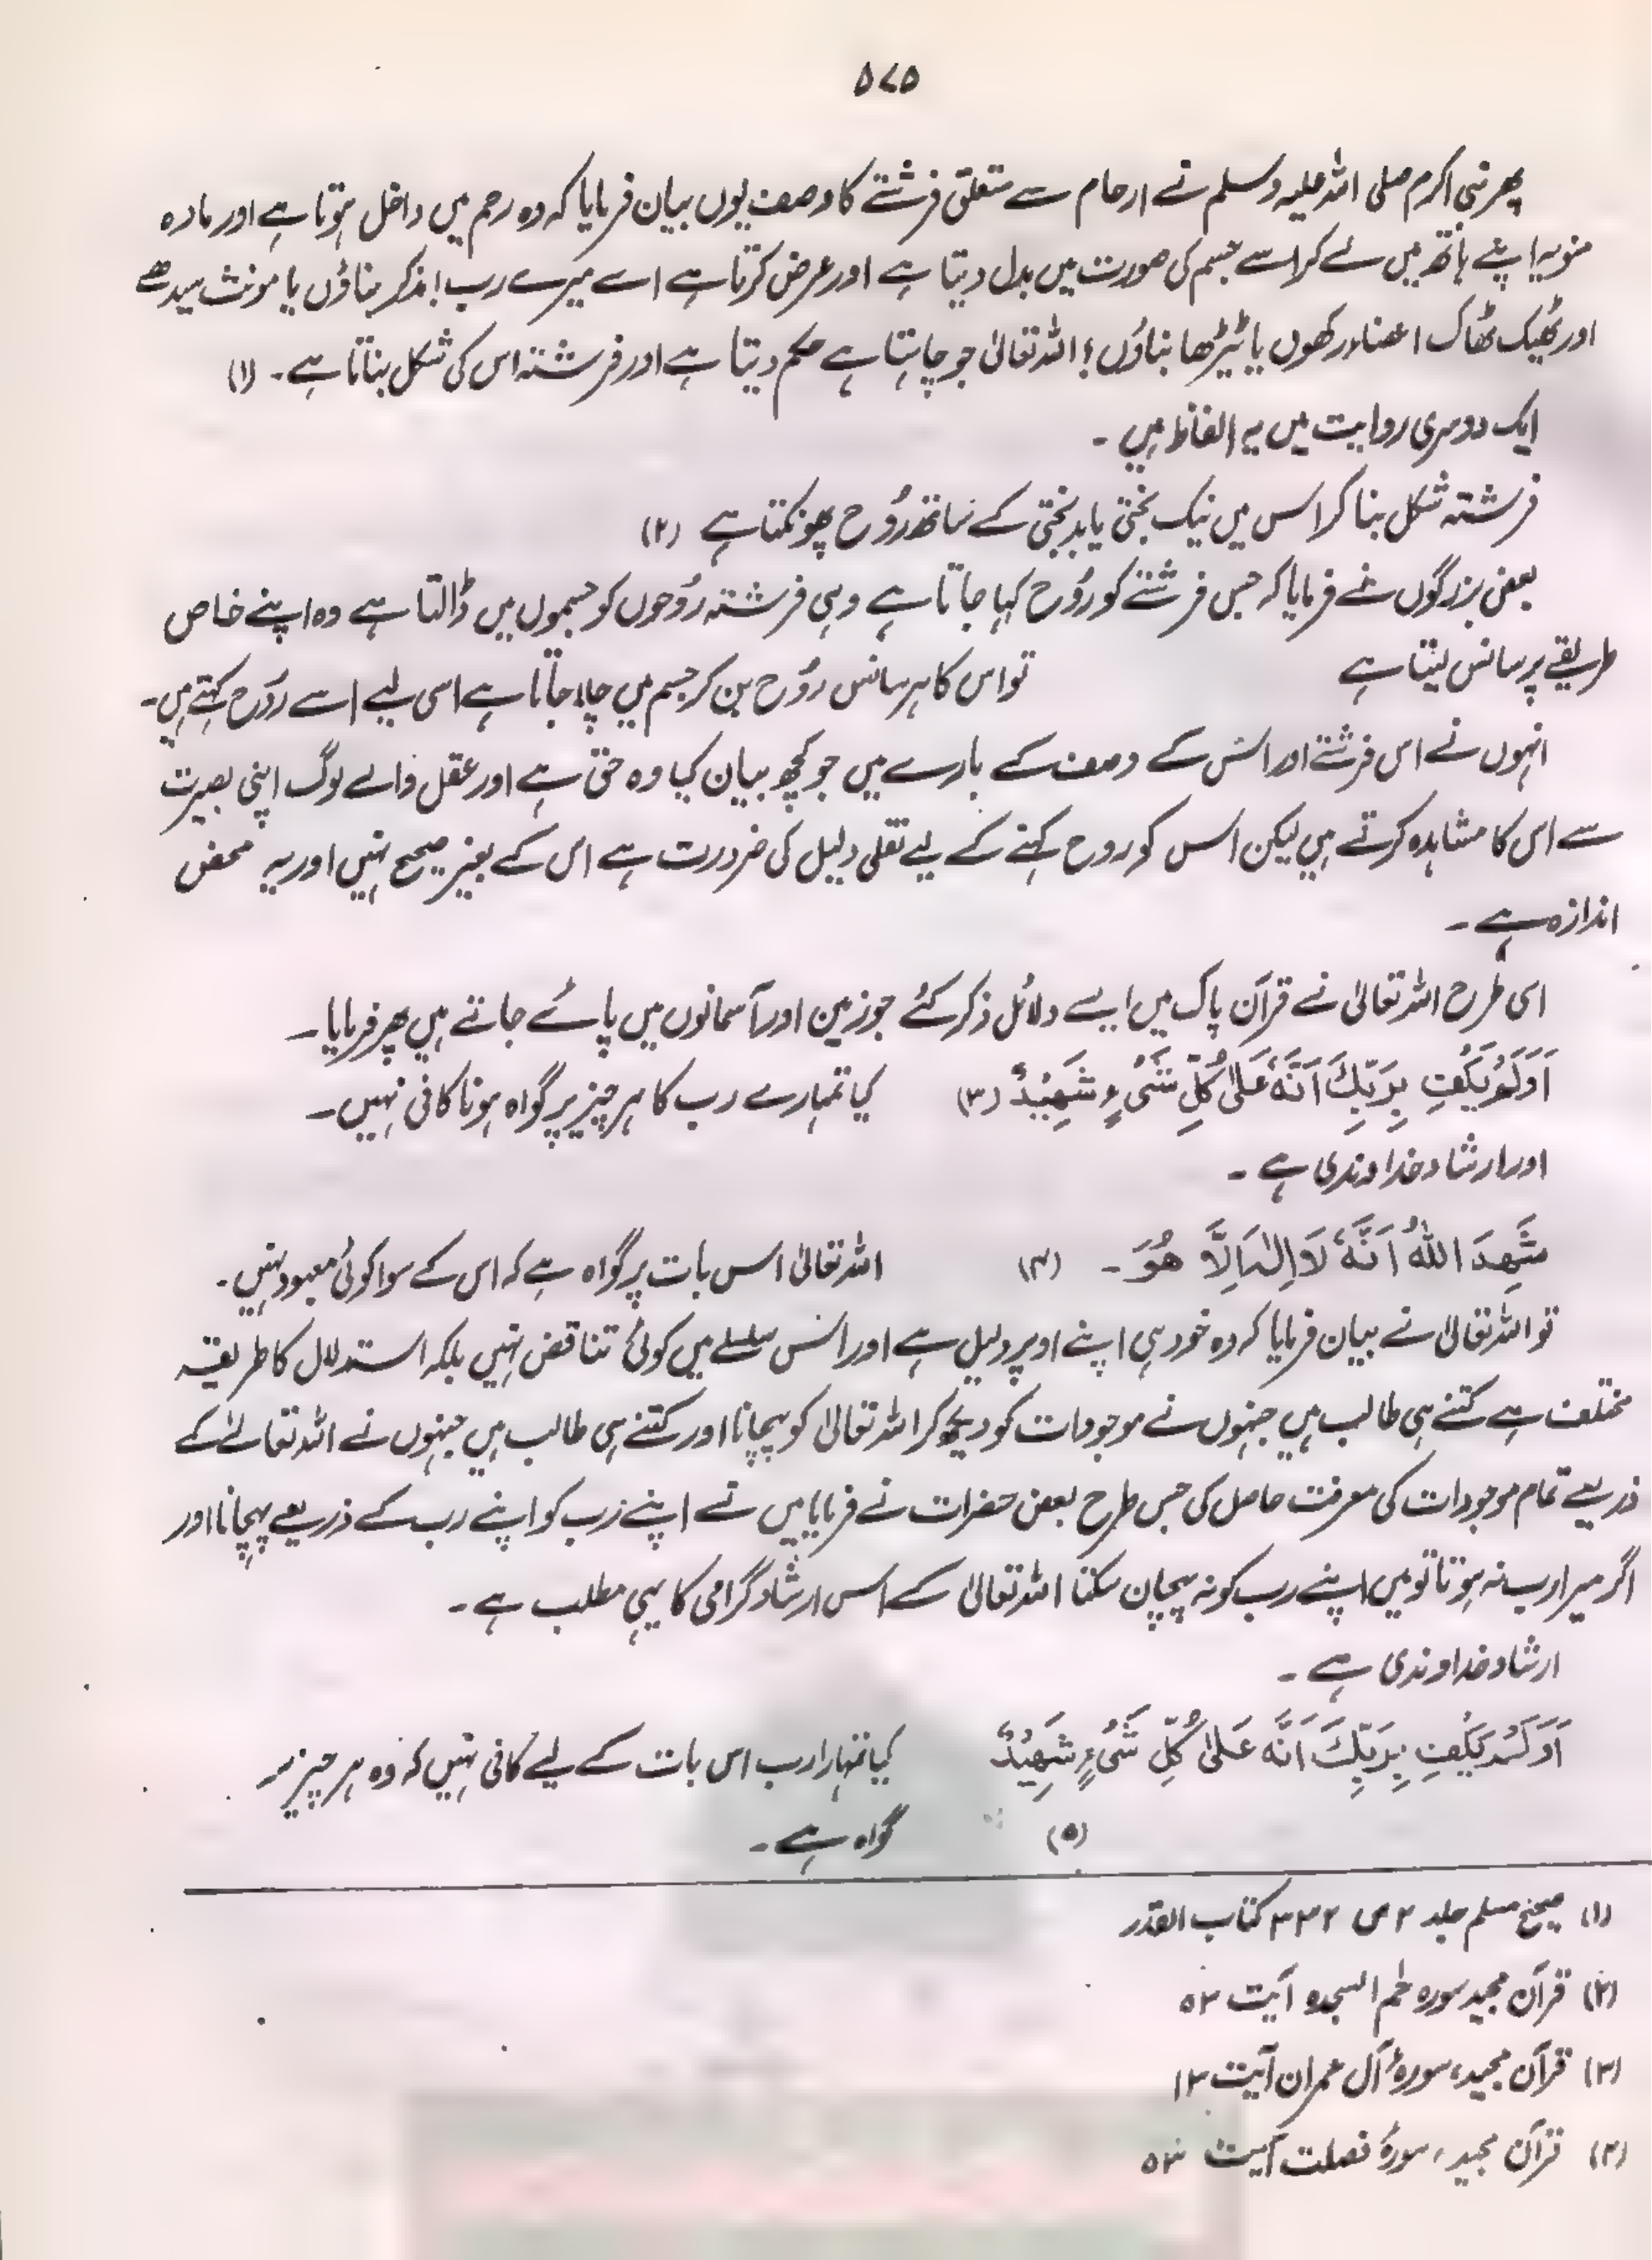 ۵۷۵
پھر نبی اکرم صلی اللہ علیہ وسلم نے ارحام سے متعلق فرشتے کا وصف یوں بیان فرمایا کہ وہ رحم میں داخل ہوتا ہے اور مادہ
منویہ اپنے ہاتھ میں لے کر اسے جسم کی صورت میں بدل دیتا ہے اور عرض کرتا ہے اے میرے رب! مذکر بناؤں یا مونث سیدھے
اور ٹھیک ٹھاک اعضاء رکھوں یا ٹیڑھا بناؤں؟ اللہ تعالیٰ جو چاہتا ہے حکم دیتا ہے اور فرشتہ اس کی شکل بناتا ہے۔ (۱)
ایک دوسری روایت میں یہ الفاظ ہیں۔
فرشتہ شکل بنا کر اس میں نیک بختی یا بدبختی کے ساتھ رُوح پھونکتا ہے (۲)
بعض بزرگوں نے فرمایا کہ جس فرشتے کو رُوح کہا جاتا ہے وہی فرشتہ رُوحوں کو جسموں میں ڈالتا ہے وہ اپنے خاص
طریقے پر سانس لیتا ہے تو اس کا ہر سانس رُوح بن کر جسم میں چلا جاتا ہے اسی لیے اسے رُوح کہتے ہیں۔
انہوں نے اس فرشتے اور اس کے وصف کے بارے میں جو کچھ بیان کیا وہ حق ہے اور عقل والے لوگ اپنی بصیرت
سے اس کا مشاہدہ کرتے ہیں لیکن اس کو روح کہنے کے لیے نقلی دلیل کی ضرورت ہے اس کے بغیر صحیح نہیں اور یہ محض
اندازہ ہے۔
اسی طرح اللہ تعالیٰ نے قرآن پاک میں ایسے دلائل ذکر کئے جو زمین اور آسمانوں میں پائے جاتے ہیں پھر فرمایا۔
اَوَلَمْ یَکْفِ بِرَبِّکَ اَنَّہٗ عَلیٰ کُلِّ شَیْءٍ شَھِیْدٌ (۳) کیا تمہارے رب کا ہر چیز پر گواہ ہونا کافی نہیں۔
اور ارشاد خداوندی ہے۔
شَھِدَ اللّٰہُ اَنَّہٗ لَا اِلٰہَ اِلَّا ھُوَ۔ (۴) اللہ تعالیٰ اس بات پر گواہ ہے کہ اس کے سوا کوئی معبود نہیں۔
تو اللہ تعالیٰ نے بیان فرمایا کہ وہ خود ہی اپنے اوپر دلیل ہے اور اس سلسلے میں کوئی تناقض نہیں بلکہ استدلال کا طریقہ
مختلف ہے کتنے ہی طالب ہیں جنہوں نے موجودات کو دیکھ کر اللہ تعالیٰ کو پہچانا اور کتنے ہی طالب ہیں جنہوں نے اللہ تعالےٰ کے
ذریعے تمام موجودات کی معرفت حاصل کی جس طرح بعض حضرات نے فرمایا میں نے اپنے رب کو اپنے رب کے ذریعے پہچانا اور
اگر میرا رب نہ ہوتا تو میں اپنے رب کو نہ پہچان سکتا اللہ تعالیٰ کے اس ارشاد گرامی کا یہی مطلب ہے۔
ارشاد خداوندی ہے۔
اَوَلَمْ یَکْفِ بِرَبِّکَ اَنَّہٗ عَلیٰ کُلِّ شَیْءٍ شَھِیْدٌ کیا تمہارا رب اس بات کے لیے کافی نہیں کہ وہ ہر چیز پر
(۵) گواہ ہے۔
(۱) صحیح مسلم جلد ۲ ص ۳۳۲ کتاب القدر
(۲) قرآن مجید سورہ حٰم السجدہ آیت ۵۳
(۳) قرآن مجید، سورۂ آل عمران آیت ۱۳
(۴) قرآن مجید، سورۂ فصلت آیت ۵۳